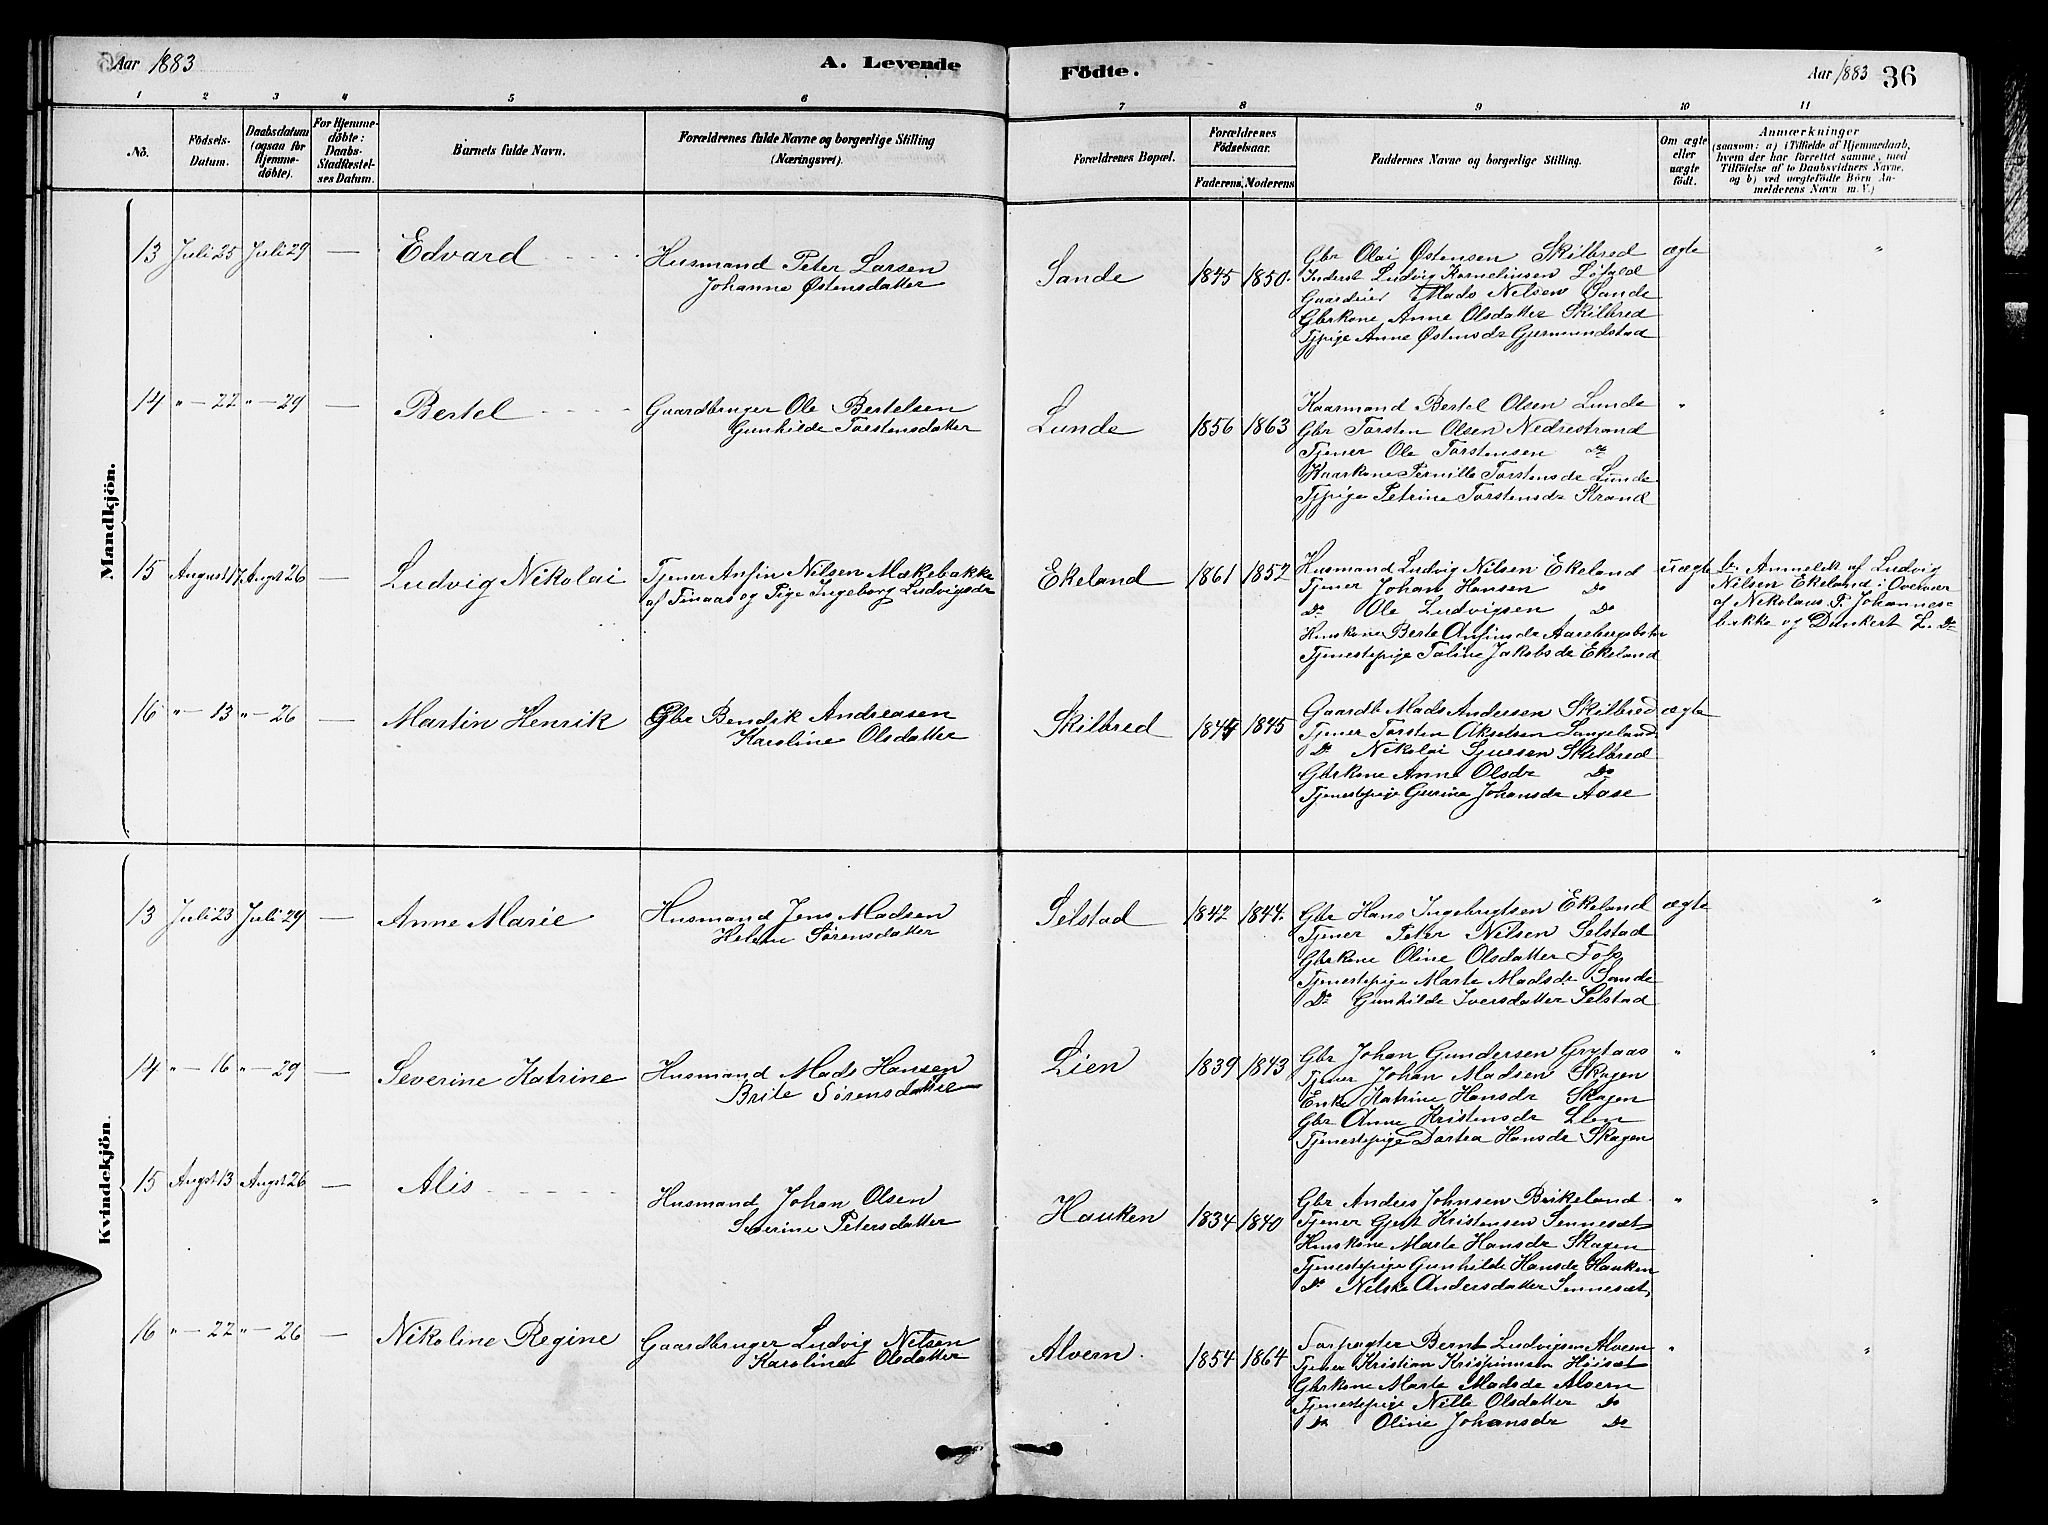 Aar 1883
A. Levende Födte.
Aar 1883 36
1 2 3 4 5 6 7 8 9 10 11
No.
Födsels-Datum.
Daabsdatum (ogsaa for Hjemme-döbte).
For Hjemme-döbte: Daabs-Stadfæstel-ses Datum.
Barnets fulde Navn.
Forældrenes fulde Navne og borgerlige Stilling (Næringsvei).
Forældrenes Bopæl.
Forældrenes Födselsaar.
Faderens. Moderens.
Faddernes Navne og borgerlige Stilling.
Om ægte eller uægte födt.
Anmærkninger
(saasom: a) i Tilfælde af Hjemmedaab, hvem der har forrettet samme, med Tilföielse af to Daabsvidners Navne, og b) ved uægtefödte Börn An-melderens Navn m. V.)
Mandkjön.
13 Juli 25 Juli 29 — Edvard
Husmand Peter Larsen
Johanne Østensdatter
Sande 1845 1850.
Gbr Olai Østensen Skilbred ægte "
Inderst Ludvig Kornelius​sen
Gaardeier Mads Nilsen Sande
Gbrkone Anne Olsdatter Skilbred
Tjpige Anne Østensdr Gjermundstad
14 " — 22 " — 29 — Bertel
Gaardbruger Ole Bertelsen
Gunhilde Torstensdatter
Lunde 1856 1863
Kaarmand Bertel Olsen Lunde " "
Gbr Torsten Olsen Nedrestrand
Tjener Ole Torstensen Do
Kaarkone Pernille Torstensdr Lunde
Tjpige Petrine Torstensdr Strand
15 August 17. Augst 26 — Ludvig Nikolai
Tjener Anfin Nilsen Mækebakke
af Finaas og Pige Ingeborg Ludvigsdr
Ekeland 1861 1852
Husmand Ludvig Nilsen Ekeland uægte
Tjener Johan Hansen Do
Do Ole Ludvigsen Do
Huskone Berte Anfinsdr
Tjenestepige Taline Jakobsdr Ekeland
b. Anmeldt af Ludvig
Nilsen Ekeland i Overvær
af Nikolaus P. Johannes-
bakke og Dankert L. Do
16 " — 13 " — 26 — Martin Henrik
Gbr Bendik Andreasen
Karoline Olsdatter
Skilbred 1844 1845
Gaardb. Mads Andersen Skilbred ægte
Tjener Torsten Akselsen Langeland
Do Nikolai Sjursen Skilbred
Gbrkone Anne Olsdr Do
Tjenestepige Gurina Johansdr Aase
Kvindekjön.
13 Juli 23 Juli 29 — Anne Marie
Husmand Jens Madsen
Helene Sørensdatter
Selstad 1842 1844.
Gbr Hans Ingebrigtsen Ekeland ægte "
Tjener Peter Nilsen Selstad
Gbrkone Oline Olsdatter Foss
Tjenestepige Marte Madsdr Sande
Do Gunhilde Iversdatter Selstad
14 " — 16 " — 29 — Severine Katrine
Husmand Mads Hansen
Brite Sørensdatter
Lien 1839 1843
Gbr Johan Gundersen Grytaas " "
Tjener Johan Madsen Skagen
Enke Katrine Hansdr Skagen
Gbr Anne Kristensdr Lien
Tjenestepige Dortea Hansdr Skagen
15 Augst 13 Augst 26 — Alis
Husmand Johan Olsen
Severine Petersdatter
Hauken 1834 1840
Gbr Anders Johnsen Birkeland " "
Tjener Gjert Kristensen Sennesæt
Huskone Marte Hansdr Skagen
Tjenestepige Gunhilde Hansdr Hauken
Do Nilske Andersdatter Sennesæt
16 " — 22 " — 26 — Nikoline Regine
Gaardbruger Ludvig Nilsen
Karoline Olsdatter
Alvern. 1854 1864
Forpagter Bernt Ludvigsen Alvern " "
Tjener Kristian Krispinusen Höisæt
Gbrkone Marte Madsdr Alvern
Tjenestepige Nille Olsdatter Do
Do Oline Johansdr Do